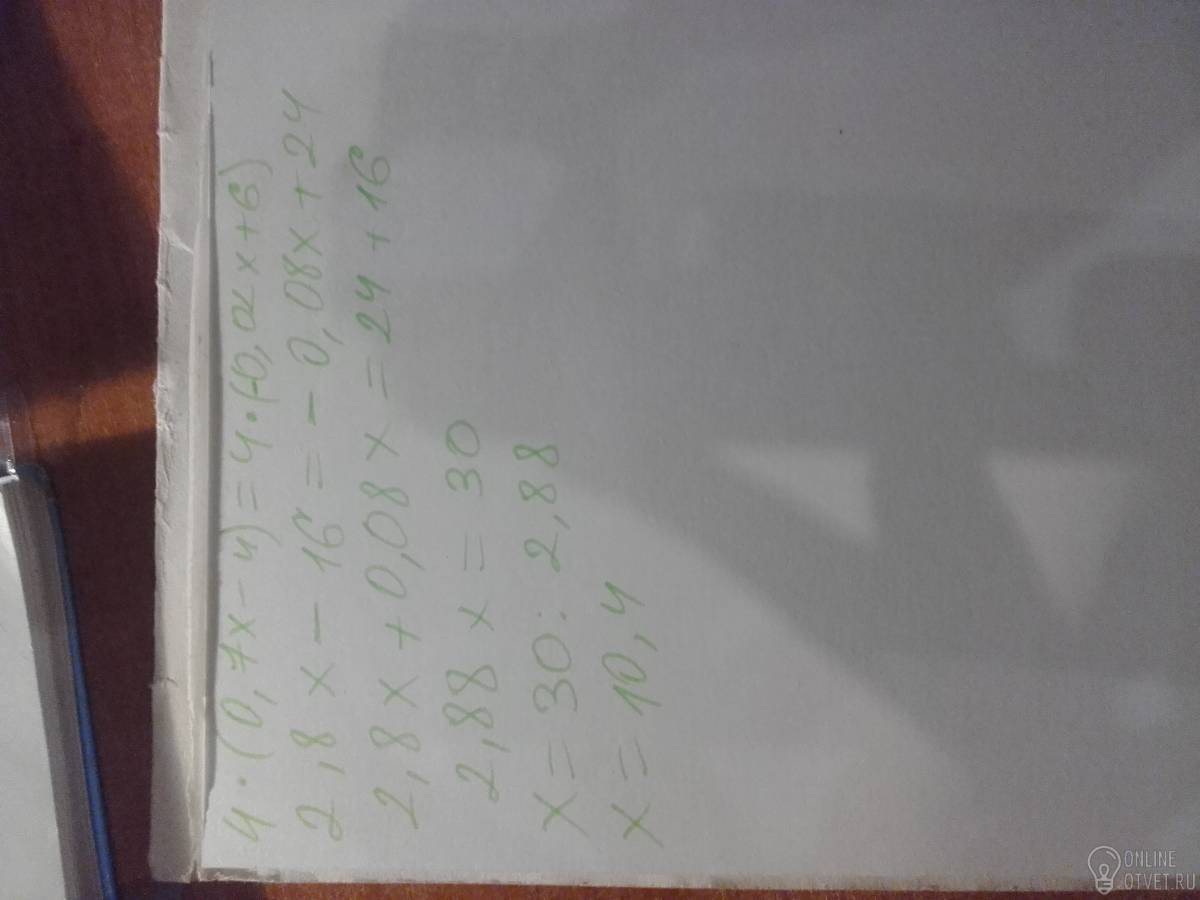 4·(0,7x-4)=4·(-0,02x+6)
2,8x-16=-0,08x+24
2,8x+0,08x=24+16
2,88x=30
x=30:2,88
x=10,4
ONLINE
OTVET.RU